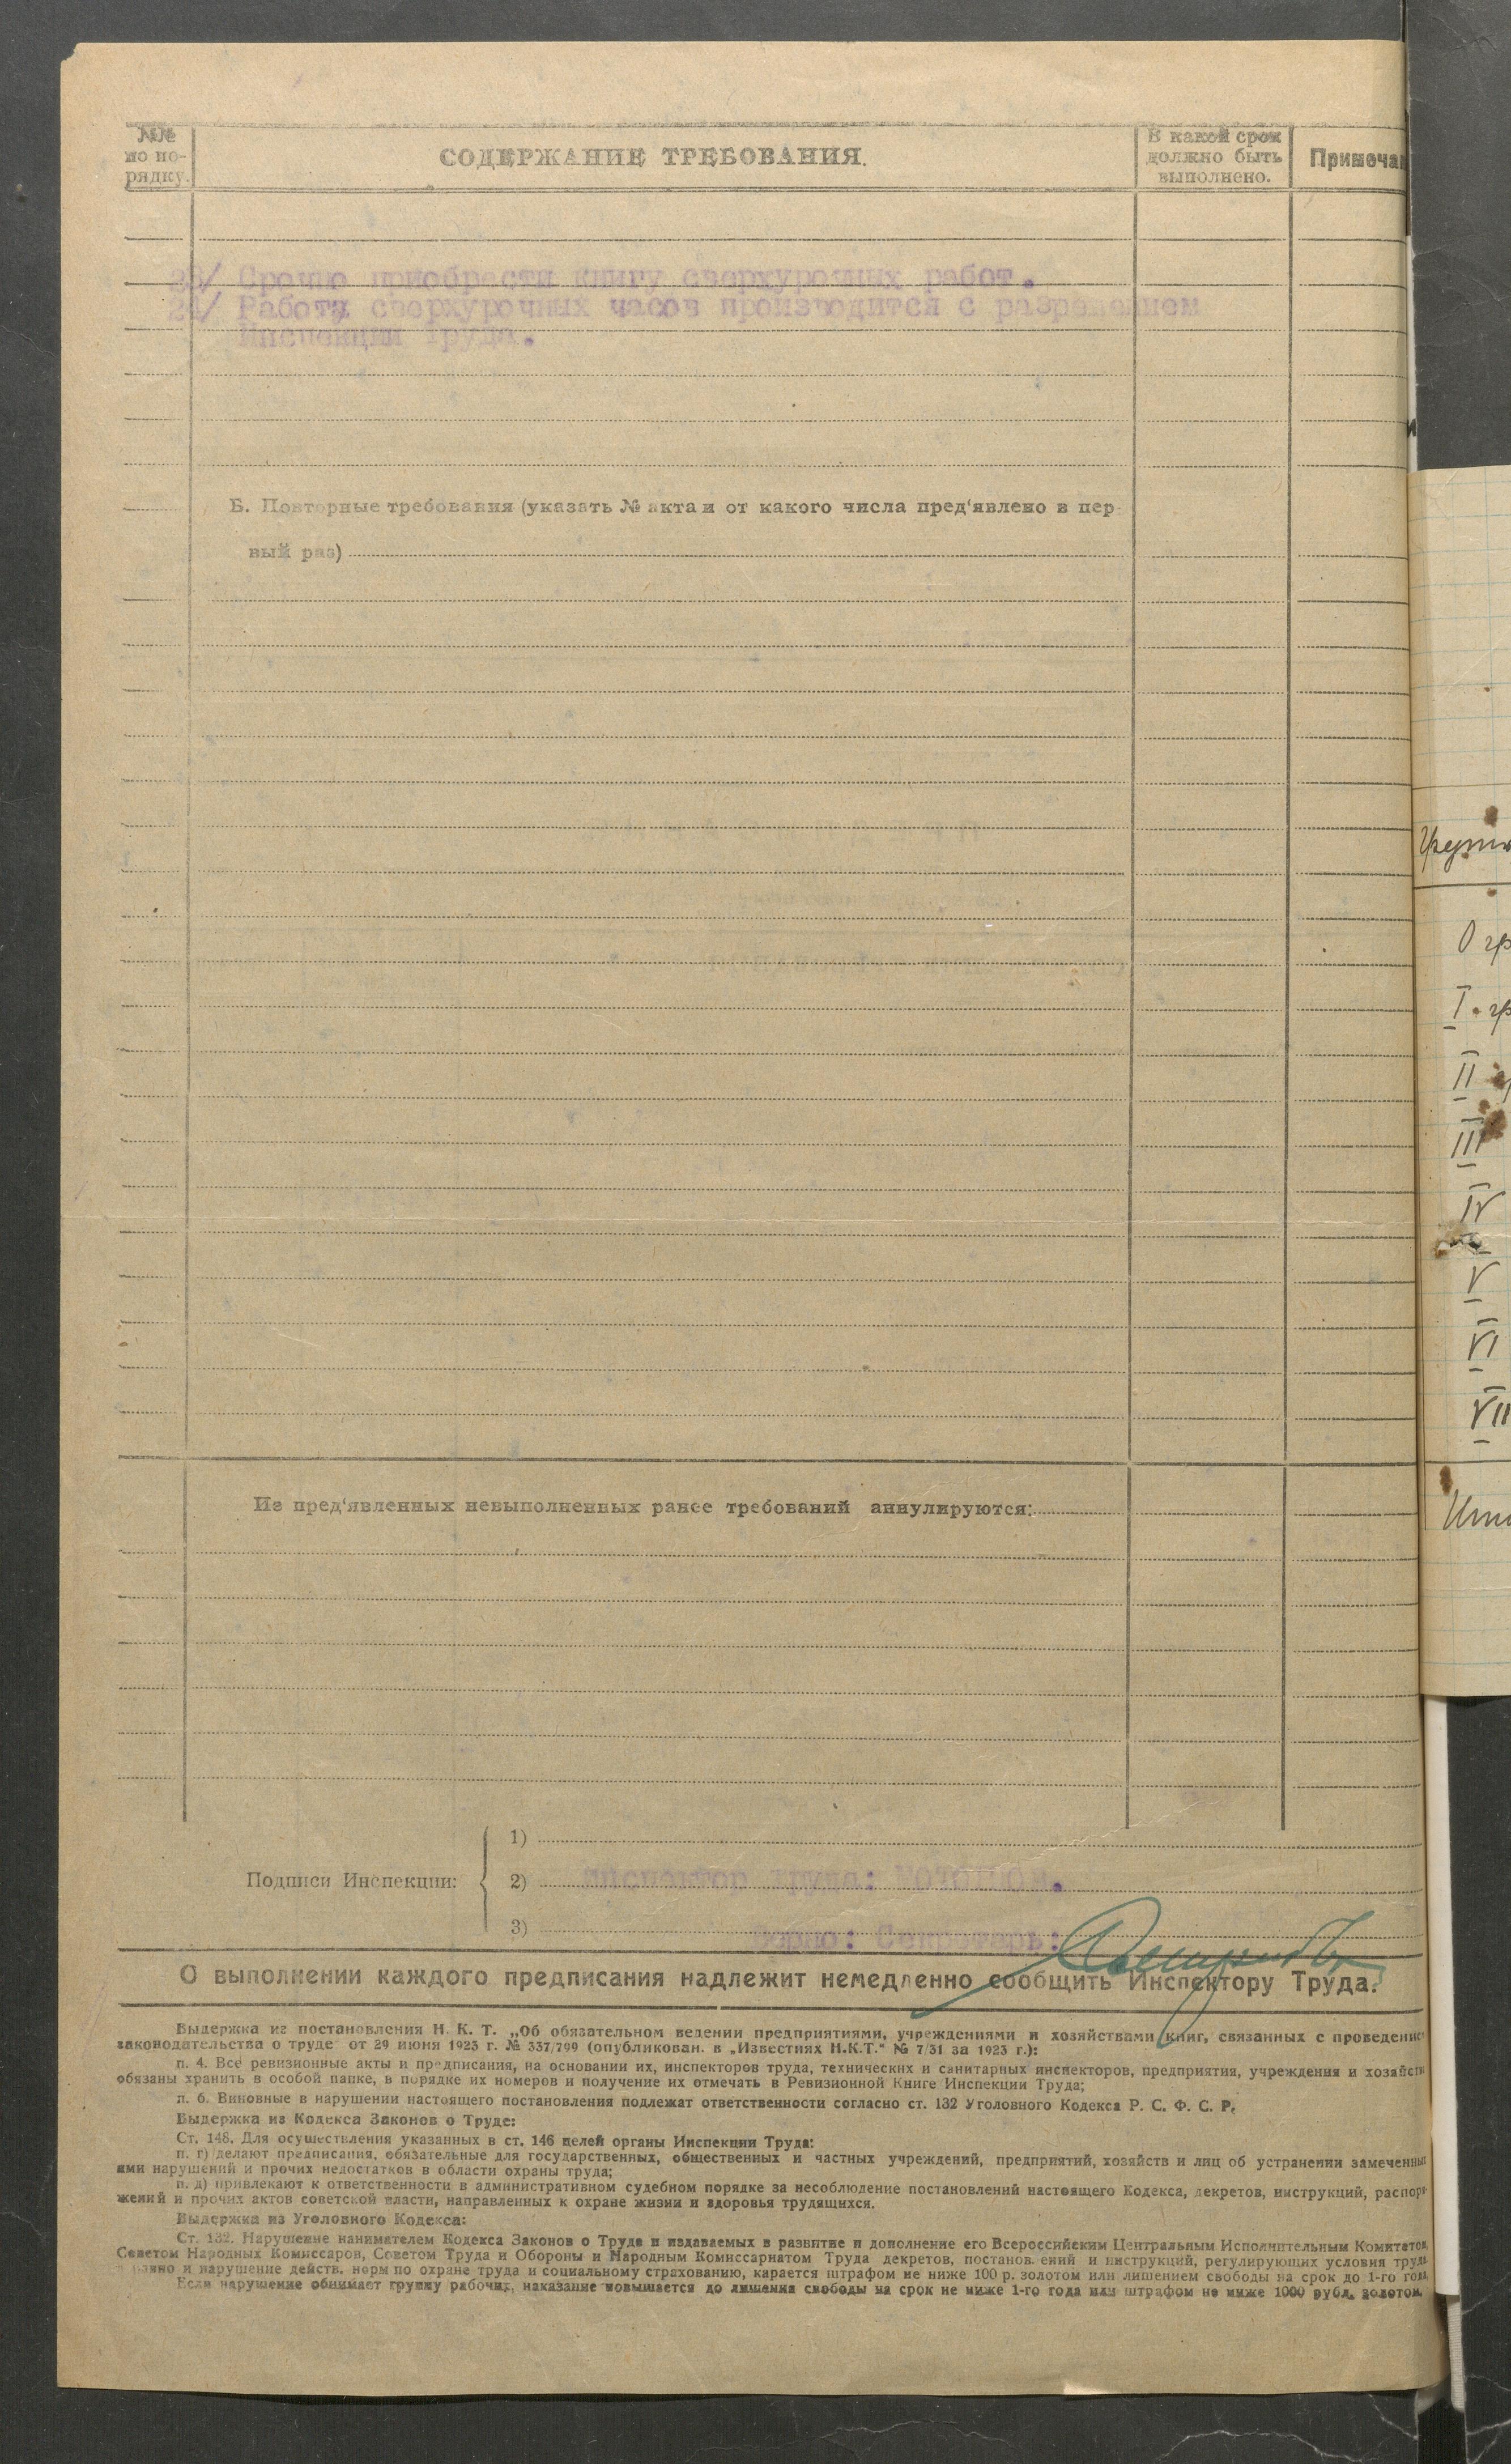 №№
по по-
рядку.
СОДЕРЖАНИЕ ТРЕБОВАНИЯ.
В какой срок
должно быть
выполнено.
Примеча
23/ Срочно приобрести книгу сверхурочных работ.
24/ Работа сверхурочных часов производится с разрешением
Инспекции Труда.
Б. Повторные требования (указать № акта и от какого числа пред‘явлено в пер-
вый раз)
Из пред‘явленных невыполненных ранее требований аннулируются:
Подписи Инспекции:
1)
2) Инспектор Труда:
3) Верно: Секретарь:
О выполнении каждого предписания надлежит немедленно сообщить Инспектору Труда.
Выдержка из постановления Н. К. Т. „Об обязательном ведении предприятиями, учреждениями и хозяйствами книг, связанных с проведение
законодательства о труде" от 29 июня 1923 г. № 337/799 (опубликован. в „Известиях Н.К.Т." № 7/31 за 1923 г.):
п. 4. Все ревизионные акты и предписания, на основании их, инспекторов труда, технических и санитарных инспекторов, предприятия, учреждения и хозяйств
обязаны хранить в особой папке, в порядке их номеров и получение их отмечать в Ревизионной Книге Инспекции Труда;
п. 6. Виновные в нарушении настоящего постановления подлежат ответственности согласно ст. 132 Уголовного Кодекса Р. С. Ф. С. Р.
Выдержка из Кодекса Законов о Труде:
Ст. 148. Для осуществления указанных в ст. 146 целей органы Инспекции Труда:
п. г) делают предписания, обязательные для государственных, общественных и частных учреждений, предприятий, хозяйств и лиц об устранении замеченны
ими нарушений и прочих недостатков в области охраны труда;
п. д) привлекают к ответственности в административном судебном порядке за несоблюдение постановлений настоящего Кодекса, декретов, инструкций, распоря
жений и прочих актов советской власти, направленных к охране жизни и здоровья трудящихся.
Выдержка из Уголовного Кодекса:
Ст. 132. Нарушение нанимателем Кодекса Законов о Труде и издаваемых в развитие и дополнение его Всероссийским Центральным Исполнительным Комитетом,
Советом Народных Комиссаров, Советом Труда и Обороны и Народным Комиссариатом Труда декретов, постановлений и инструкций, регулирующих условия труда,
равно и нарушение действ. норм по охране труда и социальному страхованию, карается штрафом не ниже 100 р. золотом или лишением свободы на срок до 1-го года.
Если нарушение обнимает группу рабочих, наказание повышается до лишения свободы на срок не ниже 1-го года или штрафом не ниже 1000 рубл. золотом.
О гр
I. гр
II
III
IV
V
VI
VII